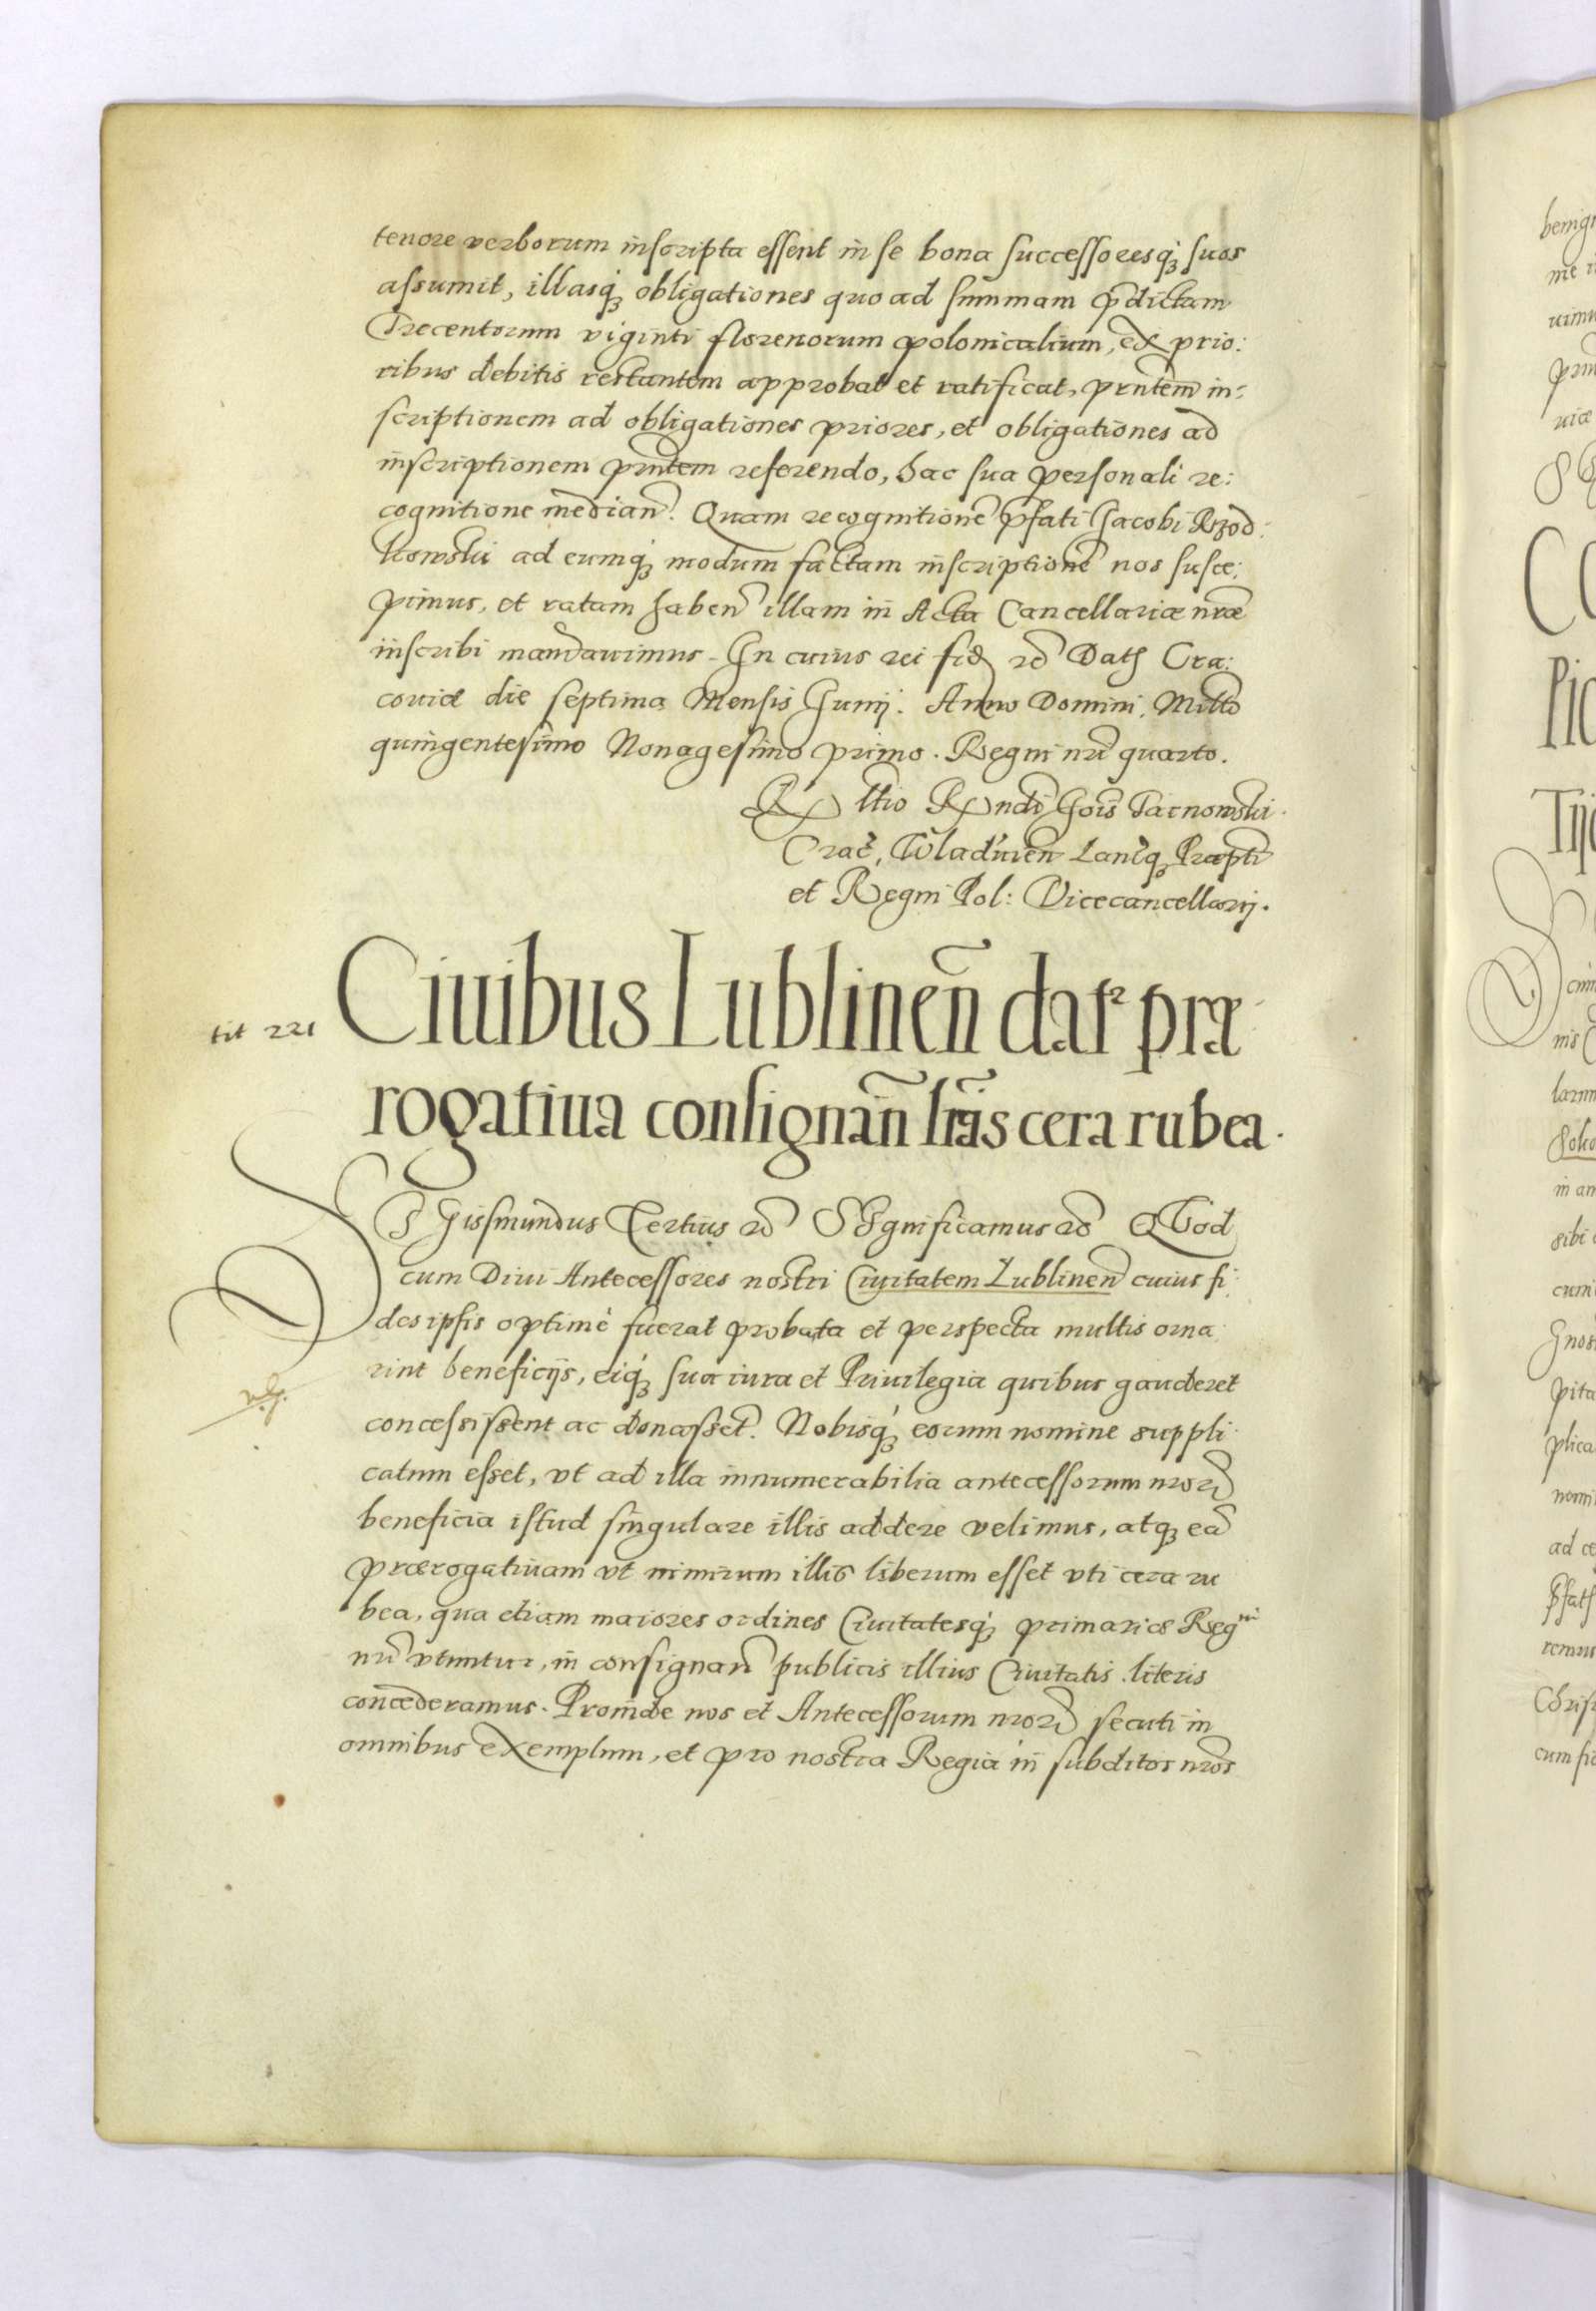 tenore verborum inscripta essent in se bona successoresq́ꝫ suos
assumit, illasq́ꝫ obligationes quo ad summam p̄dictam
Trecentorum viginti florenorum polonicalium, ex prio:
ribus debitis restantem approbat et ratificat, prn̄tem in:
scriptionem ad obligationes priores, et obligationes ad
inscriptionem prn̄tem referendo, hac sua personali re:
cognitione median̄. Quam recognitionē p̄fati Jacobi Rzod:
kowski ad eumq́ꝫ modum factam inscriptionē nos susce:
pimus, et ratam haben̄ illam in Acta Cancellariæ nr̄æ
inscribi mandauimus. In cuius rei fid
Cra:
couiæ die septima Mensis Junij. Anno Domini, Millo
quingentesimo Nonagesimo primo. Regni nr̄i quarto.
Rx ltio Rx ndi Jois Tarnowski
Crac̄, Wladislauien̄ Lancq Præpti
et Regni Pol: Vicecancellarij.
tit 221
Ciuibus Lublinen̄ datꝛ præ
rogatiua consignan̄ lr̄as cera rubea.
SIgismundus Tertius ꝛc̄ SIgnificamus ꝛc̄ QVod
cum Diui Antecessores nostri Ciuitatem Lublinen̄ cuius fi:
des ipsis optimè fuerat probata et perspecta multis orna:
rint beneficijs, eiq́ꝫ sua iura et Priuilegia quibus gauderet
concessissent ac donassēt. Nobisq́ꝫ eorum nomine suppli:
catum esset, vt ad illa innumerabilia antecessorum nror̄
beneficia istud singulare illis addere velimus, atqꝫ eā
prærogatiuam vt nimirum illis liberum esset vti cera ru
bea, qua etiam maiores ordines Ciuitatesq́ꝫ primariæ Regni
nr̄i vtuntur, in consignan̄ publicis illius Ciuitatis literis
concederamus. Proinde nos et Antecessorum nror̄ secuti in
omnibus exemplum, et pro nostra Regia in subditos nr̄os